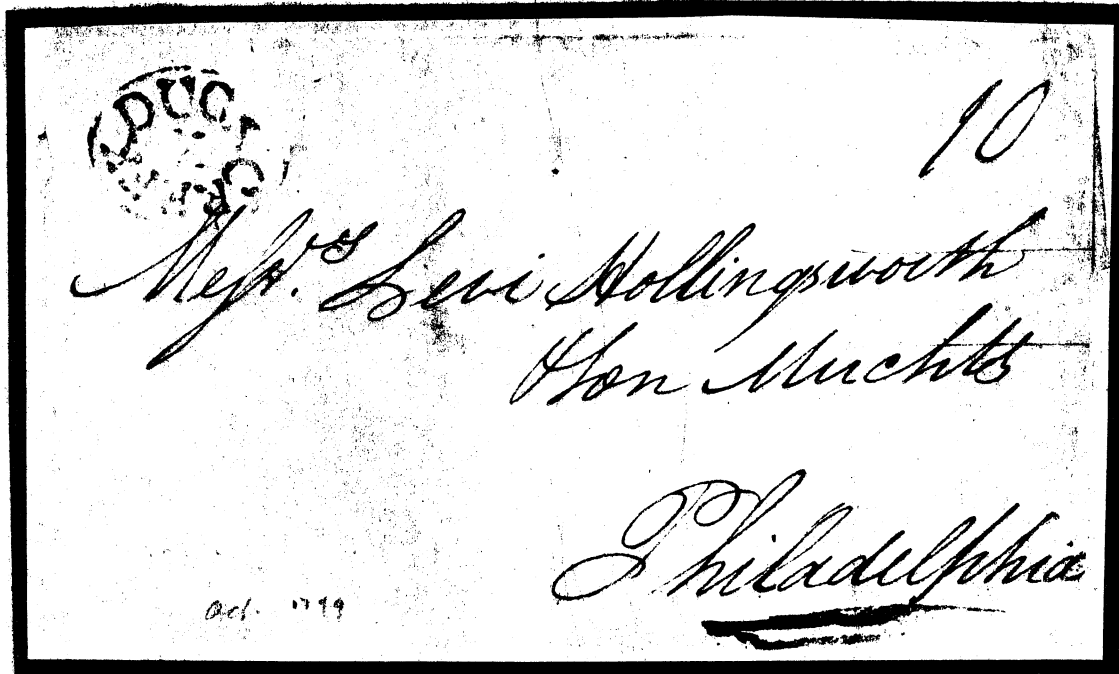 DUCK CR
10
Messrs. Levi Hollingsworth
& Son Merchts
Philadelphia
Oct. 1799